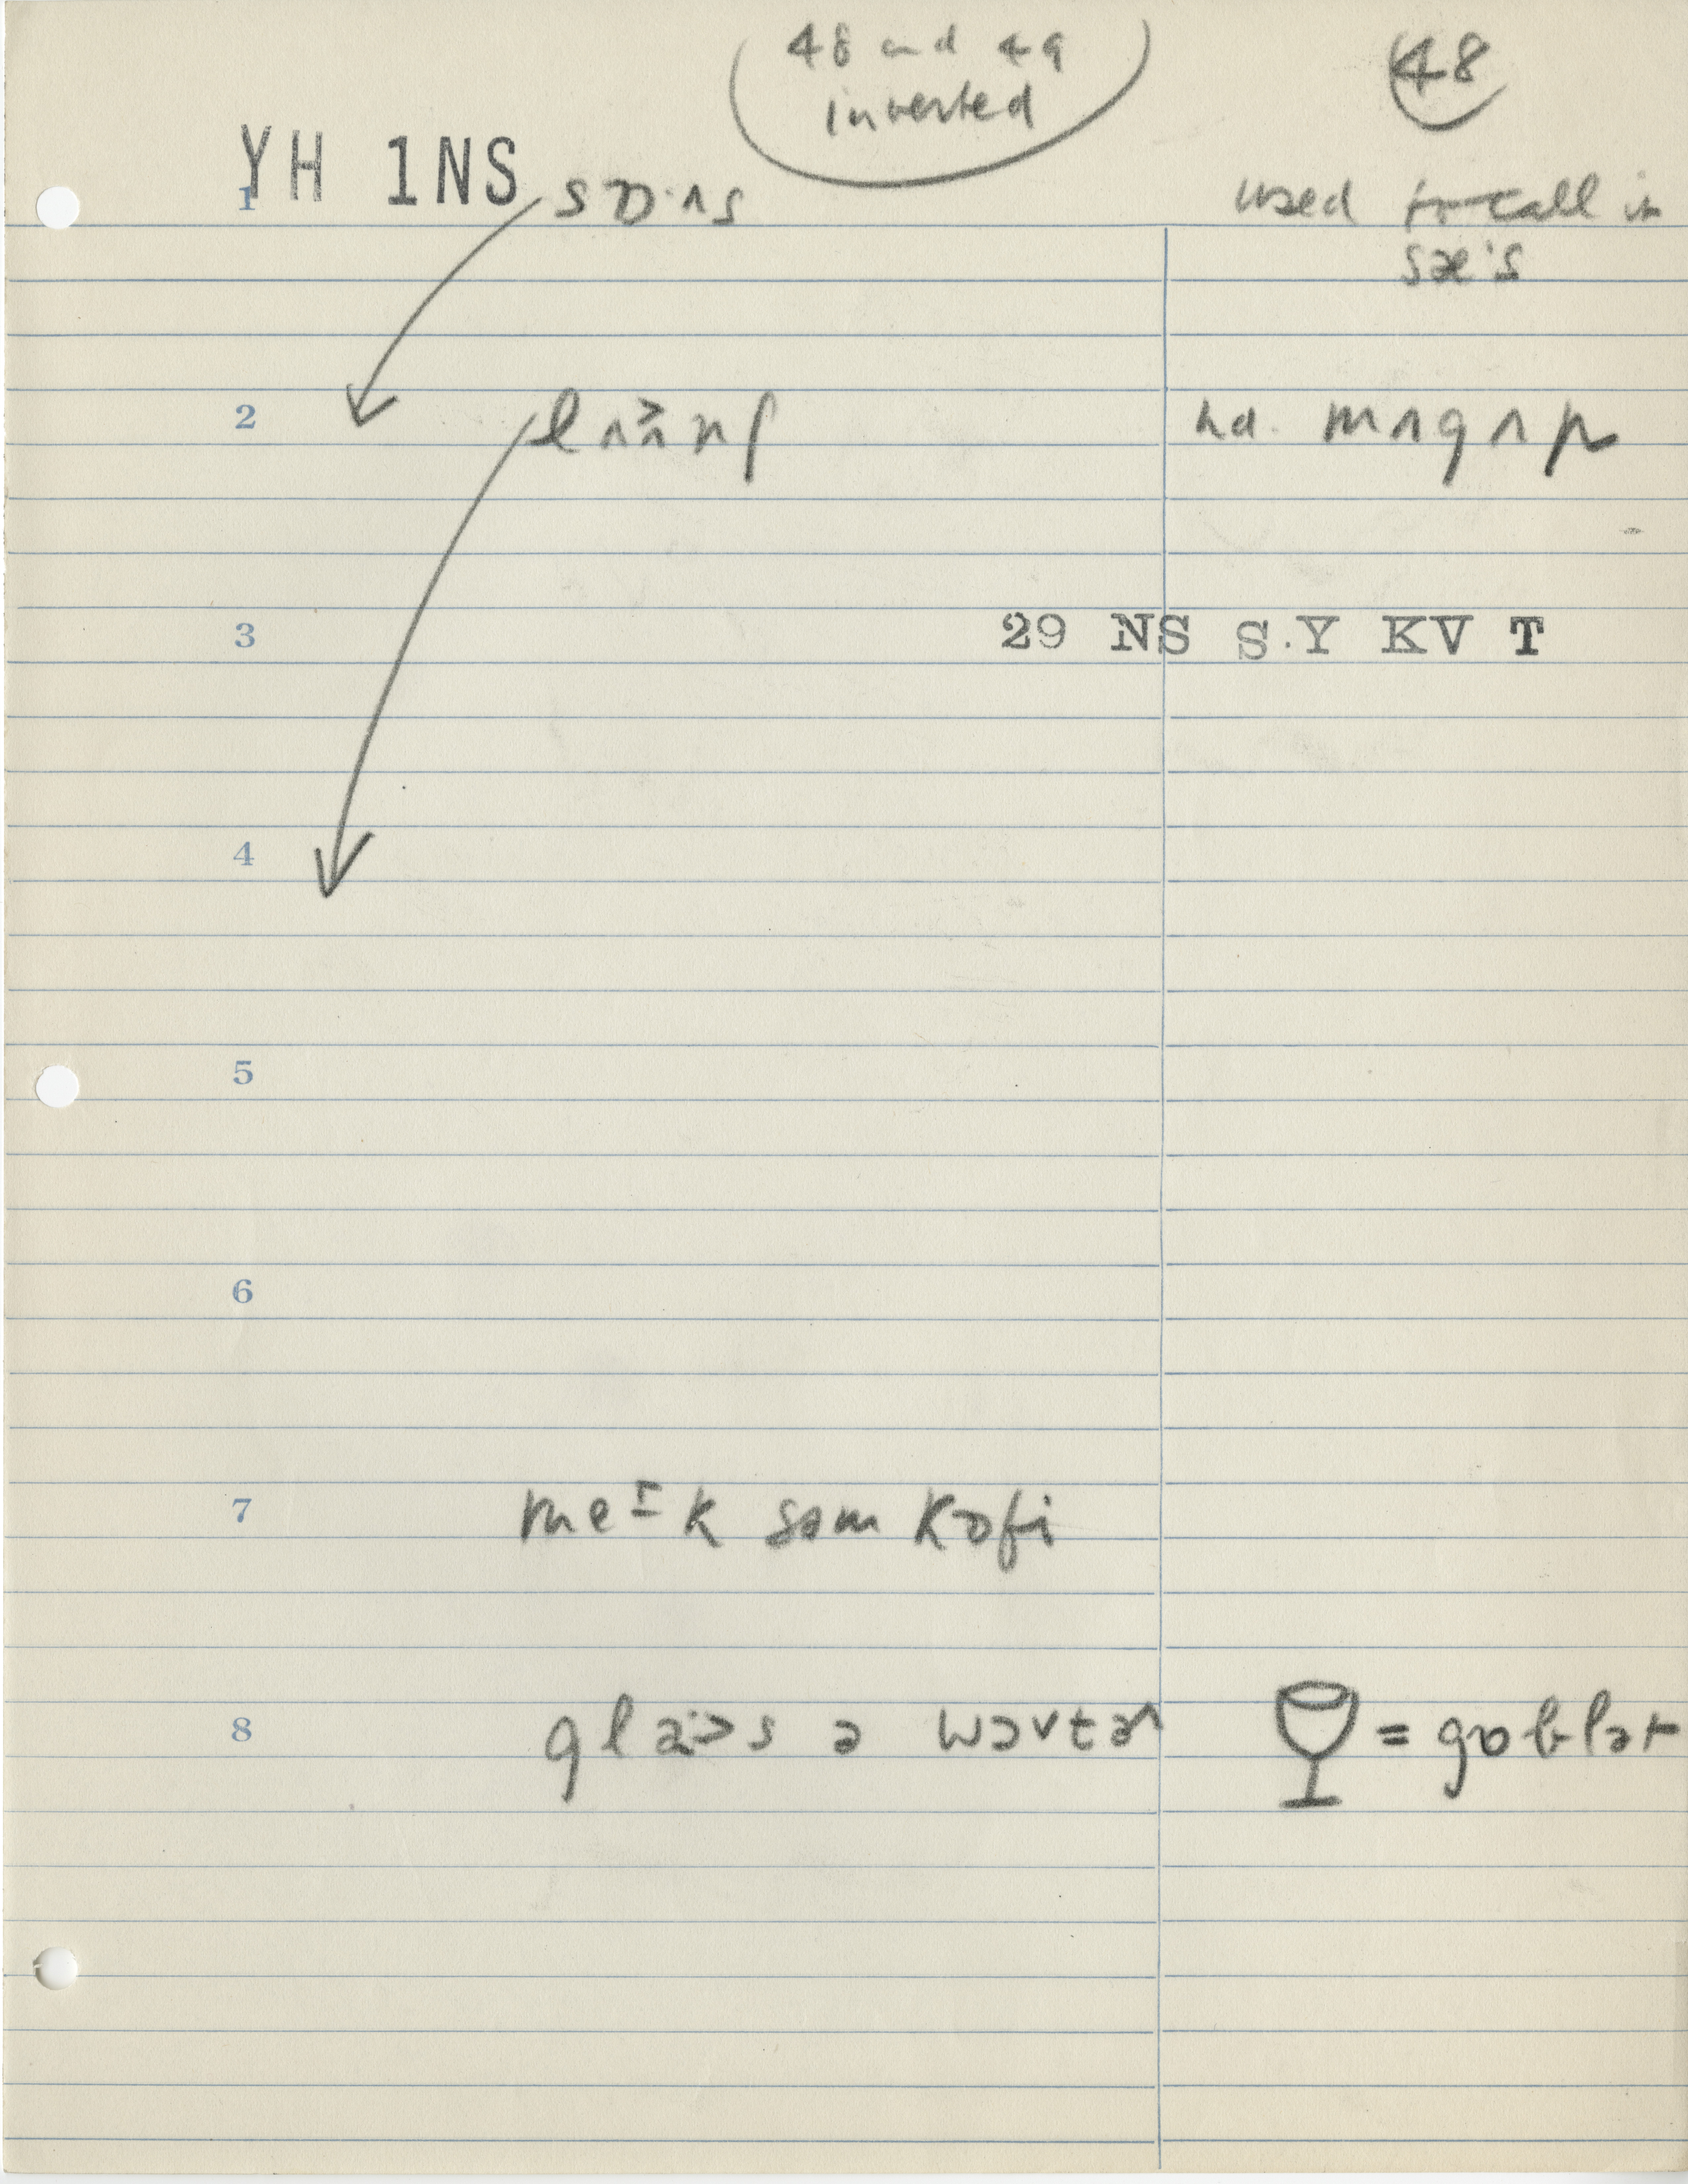 48 and 49
inverted
48
YH 1NS
1
sɒ·ʌs
used to call it
sæ's
2
hd. mʌgʌp
3
29 NS S.Y KV T
4
5
6
7
meɪk səm kɒfi
8
= gɒblət